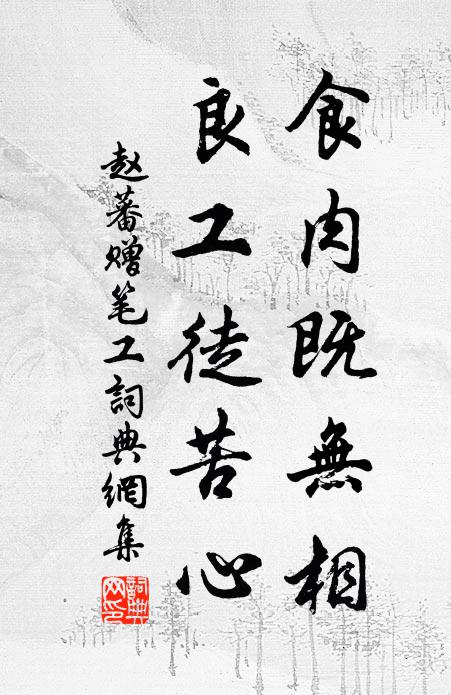 食肉既無相
良工徒苦心
赵蕃赠笔工詞典網集
詞典網印